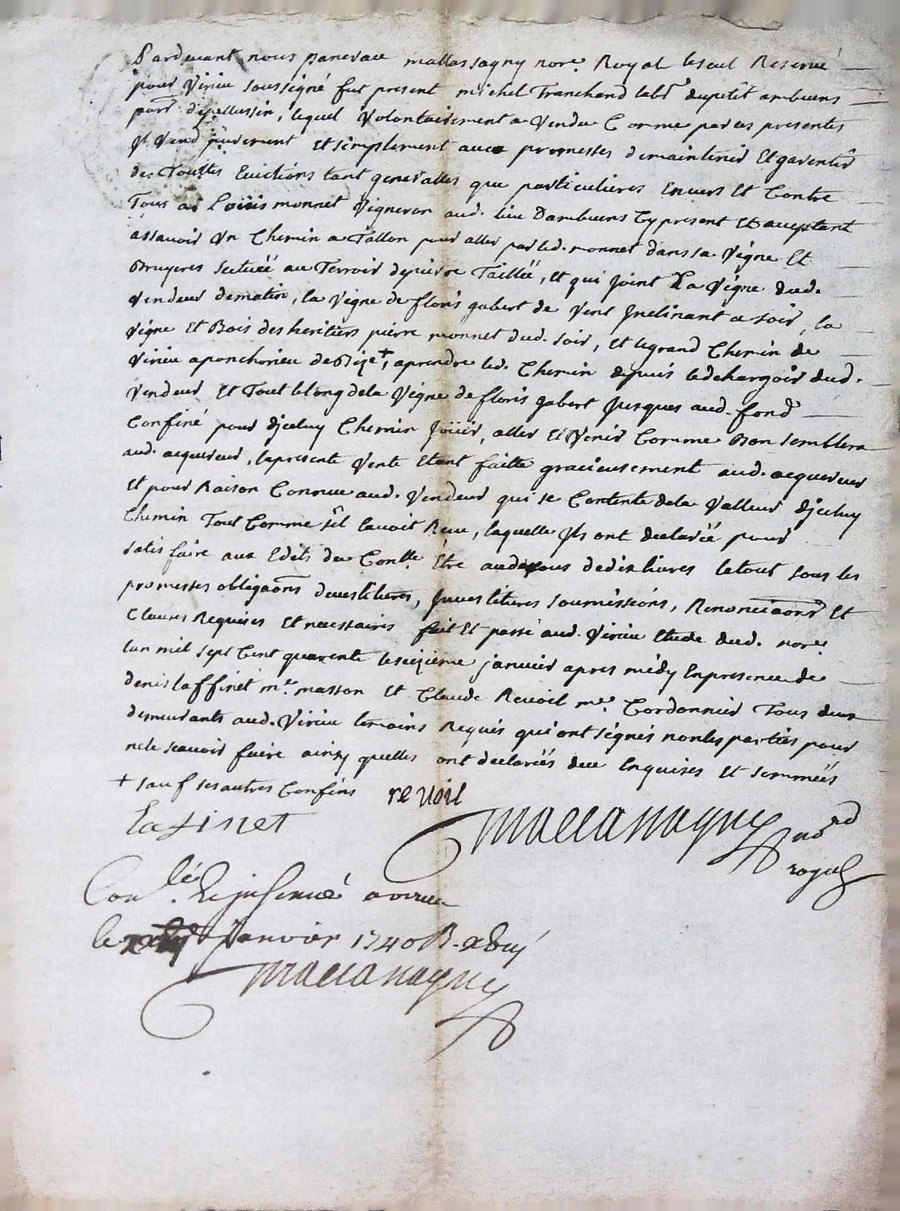 Pardevant nous Mallassagny nore. Royal le seul Reservé
pour Viriu soussigné fut present michel Tranchand labr. du petit ambuens
parr. depellussin, lequel Volontairement a Vendu Comme par ces presentes
Il Vend purement et simplement avec promesses de maintenir Et garentir
de Touttes Evictions tant generalles que particulieres Envers Et Contre
Tous a Loüis monnet Vigneron aud. lieu Dambuens Cy present Et acceptant
assavoir Un Chemin a Tallon pour aller par led. monnet dans sa Vigne Et
Bruyeres scituéé au Terroir de pierre Tailléé, et qui joint La Vigne dud.
Vendeur de matin, la Vigne de floris gabert de Vent Inclinant a soir, la
Vigne Et Bois des heritiers pierre monnet dud. soir, Et le grand Chemin de
Viriu a de Bize +, a prendre led. Chemin depuis le dechargoir dud.
Vendeur Et Tout le long de la Vigne de floris gabert Jusques aud. fond
Confiné pour dJceluy Chemin Joüir, aller Et Venir Comme Bon semblera
aud. acquereur, la presente Vente Etant faitte gracieusement aud. acquereur
Et pour Raison Connue aud. Vendeur qui se Contente de la Valleur dJceluy
Chemin Tout Comme sil lavoit Reçu, laquelle Ils ont declaréé pour
satisfaire aux Edits du Conlle. Etre de dix livres le tout sous les
promesses obligaons devestitures, Investitures soumissions, Renonciaons Et
Clauses Requises Et necessaires fait Et passé aud. Viriu Etude dud. nore.
Lan mil sept Cent quarente le seizieme janvier apres midy En presence de
denis laffinet me. masson Et Claude Revoil me. Cordonnier Tous deux
demeurants aud. Viriu temoins Requis qui ont signés non les parties pour
ne le scavoir faire ainsy quelles ont declaréés de ce Enquises Et sommées
+ sauf ses autres Confins revoil
Lafinet
Mallassagny nore
royal
Conlé
le janvier 1740 R.
Mallassagny